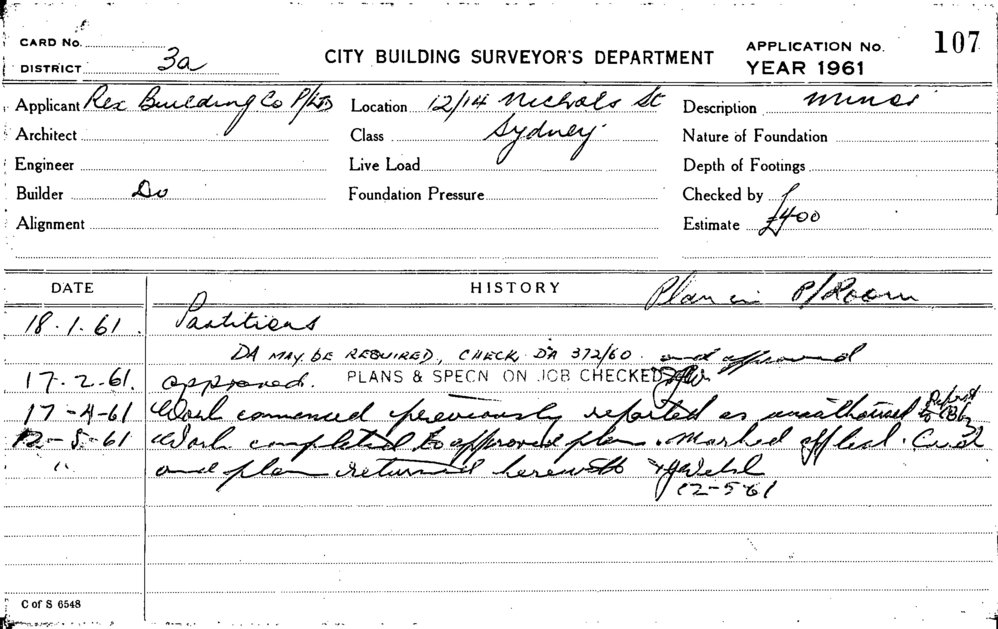 CARD No.
DISTRICT 3a
CITY BUILDING SURVEYOR'S DEPARTMENT
APPLICATION No. 107
YEAR 1961
Applicant Rex Building Co P/LTD Location 12/14 Nichols St Description Minor
Architect Class Sydney. Nature of Foundation
Engineer Live Load Depth of Footings
Builder Do Foundation Pressure Checked by
Alignment Estimate £400
DATE HISTORY Plan in P/Room
18.1.61. Partitions
DA MAY BE REQUIRED, CHECK DA 372/60. and approved
17.2.61. approved. PLANS & SPECN ON JOB CHECKED
17-4-61 Work commenced previously reported as unauthorised Report to CBS
12-5-61 Work completed to approved plan. Marked off leal. Card
" and plan returned herewith
12-5-61
C of S 6548